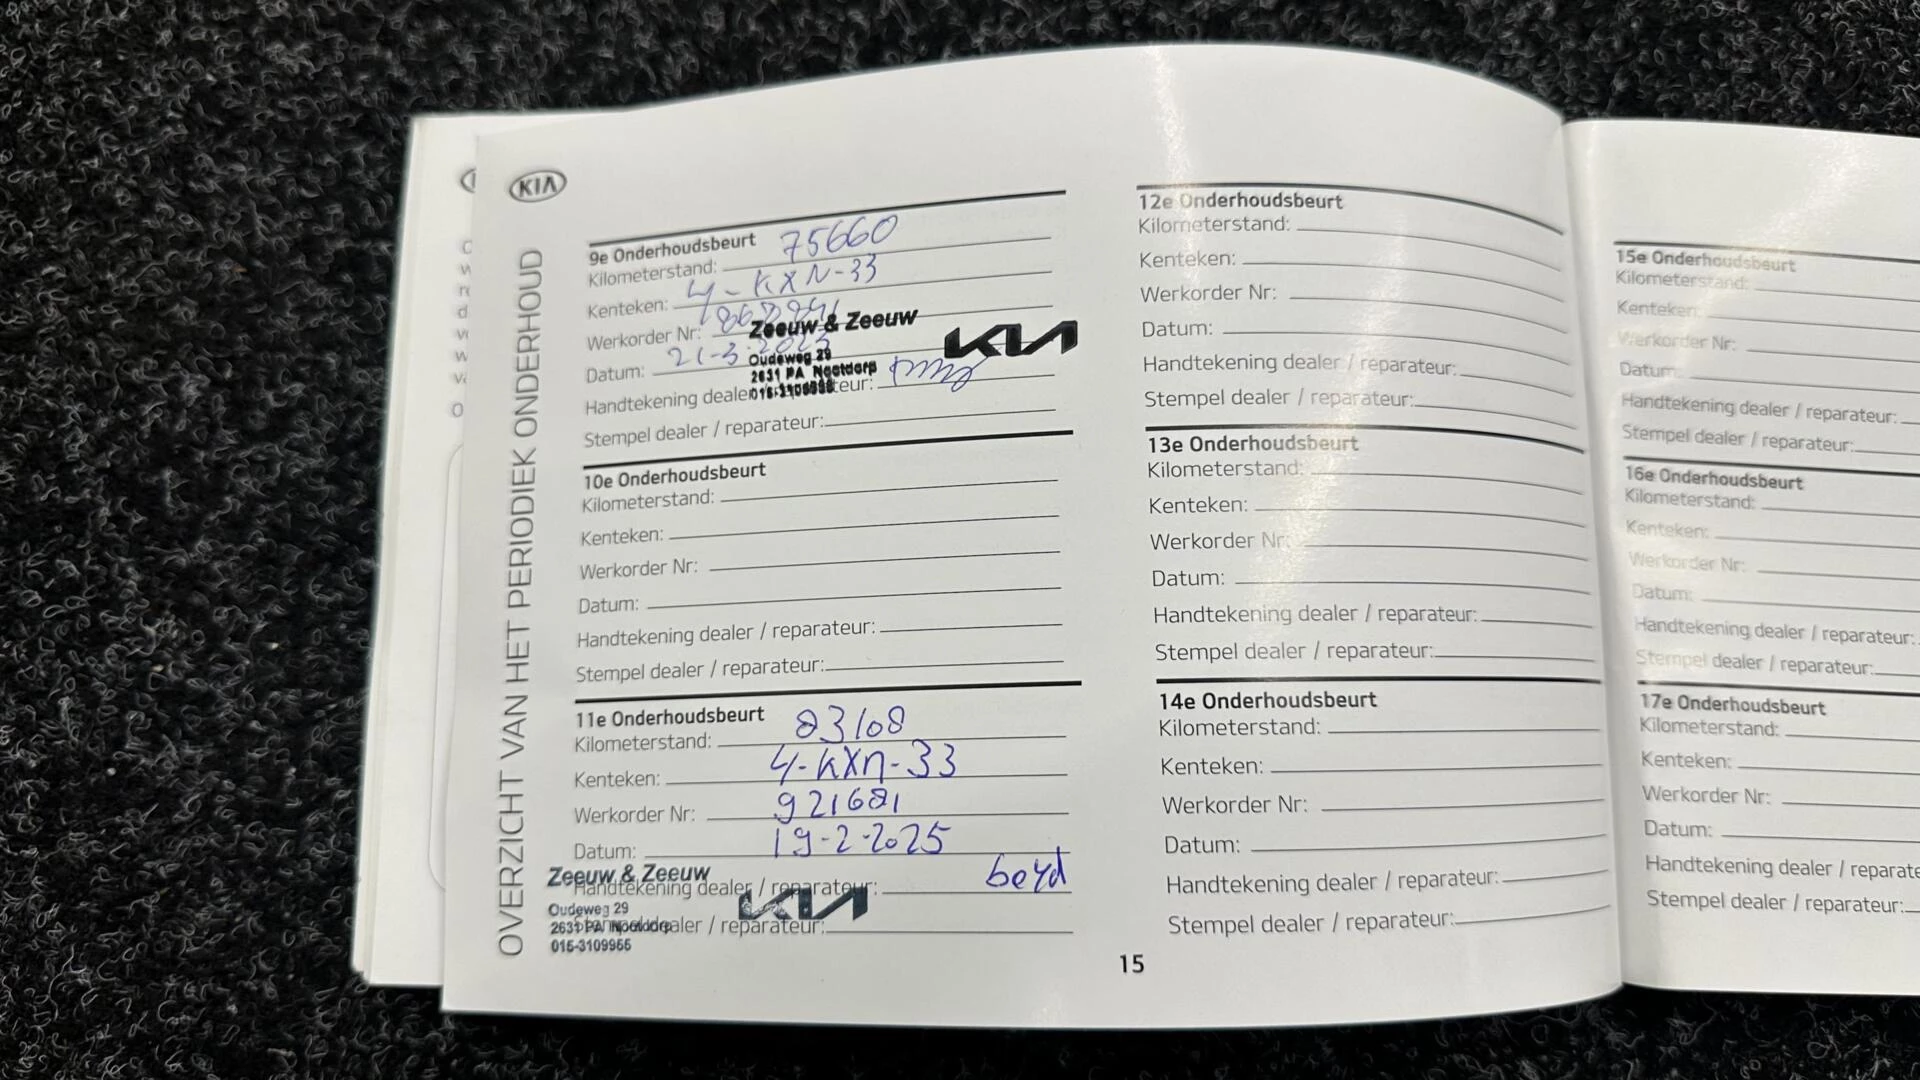 KIA
OVERZICHT VAN HET PERIODIEK ONDERHOUD
9e Onderhoudsbeurt
Kilometerstand: 75660
Kenteken: 4-KXN-33
Werkorder Nr:
Zeeuw & Zeeuw
KIA
Datum: 21-3-2023
Oudeweg 29
2631 PA Nootdorp
Handtekening dealer
teur:
Stempel dealer / reparateur:
10e Onderhoudsbeurt
Kilometerstand:
Kenteken:
Werkorder Nr:
Datum:
Handtekening dealer / reparateur:
Stempel dealer / reparateur:
11e Onderhoudsbeurt
Kilometerstand: 83108
Kenteken: 4-KXN-33
Werkorder Nr: 921681
Datum: 19-2-2025
Zeeuw & Zeeuw
Handtekening dealer / reparateur: boyd
KIA
Oudeweg 29
2631 PA Nootdorp
Stempel dealer / reparateur:
015-3109955
12e Onderhoudsbeurt
Kilometerstand:
Kenteken:
Werkorder Nr:
Datum:
Handtekening dealer / reparateur:
Stempel dealer / reparateur:
13e Onderhoudsbeurt
Kilometerstand:
Kenteken:
Werkorder Nr:
Datum:
Handtekening dealer / reparateur:
Stempel dealer / reparateur:
14e Onderhoudsbeurt
Kilometerstand:
Kenteken:
Werkorder Nr:
Datum:
Handtekening dealer / reparateur:
Stempel dealer / reparateur:
15
15e Onderhoudsbeurt
Kilometerstand:
Kenteken:
Werkorder Nr:
Datum:
Handtekening dealer / reparateur:
Stempel dealer / reparateur:
16e Onderhoudsbeurt
Kilometerstand:
Kenteken:
Werkorder Nr:
Datum:
Handtekening dealer / reparateur:
Stempel dealer / reparateur:
17e Onderhoudsbeurt
Kilometerstand:
Kenteken:
Werkorder Nr:
Datum:
Handtekening dealer / reparate
Stempel dealer / reparateur: